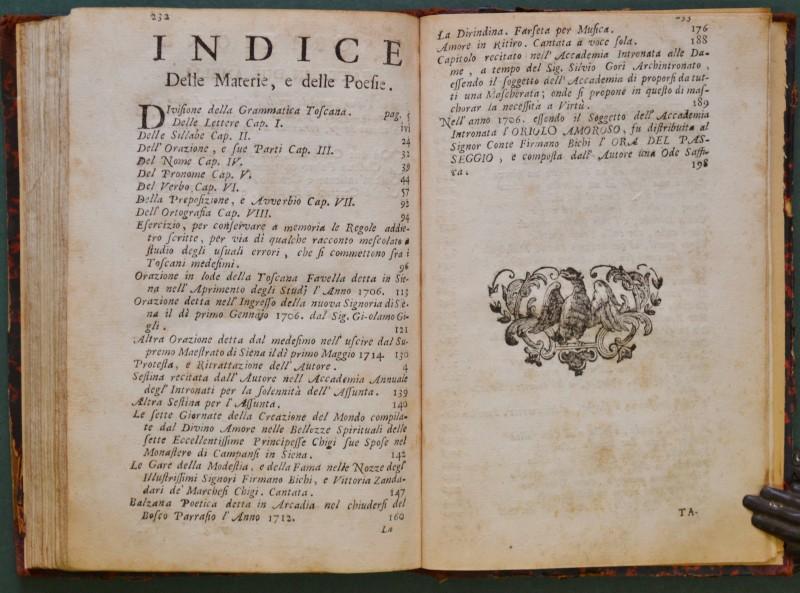 232
INDICE
Delle Materie, e delle Poesie.
Divisione della Grammatica Toscana. pag. 5
Delle Lettere Cap. I. ivi
Delle Sillabe Cap. II. 24
Dell'Orazione, e sue Parti Cap. III. 32
Del Nome Cap. IV. 39
Del Pronome Cap. V. 44
Del Verbo Cap. VI. 57
Della Preposizione, e Avverbio Cap. VII. 92
Dell'Ortografia Cap. VIII. 94
Esercizio, per conservare a memoria le Regole addie-
tro scritte, per via di qualche racconto mescolato a
studio degli usuali errori, che si commettono fra i
Toscani medesimi. 96
Orazione in lode della Toscana Favella detta in Sie-
na nell'Aprimento degli Studj l'Anno 1706. 113
Orazione detta nell'Ingresso della nuova Signoria di Sie-
na il dì primo Gennajo 1706. dal Sig. Girolamo Gi-
gli. 121
Altra Orazione detta dal medesimo nell'uscire dal Su-
premo Maestrato di Siena il dì primo Maggio 1714. 130
Protesta, e Ritrattazione dell'Autore. 4
Sestina recitata dall'Autore nell'Accademia Annuale
degl'Intronati per la solennità dell'Assunta. 139
Altra Sestina per l'Assunta. 140
Le sette Giornate della Creazione del Mondo compila-
te dal Divino Amore nelle Bellezze Spirituali delle
sette Eccellentissime Principesse Chigi sue Spose nel
Monastero di Campansi in Siena. 142
Le Gare della Modestia, e della Fama nelle Nozze degl'
Illustrissimi Signori Firmano Bichi, e Vittoria Zanda-
dari de' Marchesi Chigi. Cantata. 147
Balzana Poetica detta in Arcadia nel chiudersi del
Bosco Parrasio l'Anno 1712. 160
La
La Dirindina. Farseta per Musica. 176
Amore in Ritiro. Cantata a voce sola. 188
Capitolo recitato nell'Accademia Intronata alle Da-
me, a tempo del Sig. Silvio Gori Archintronato,
essendo il soggetto dell'Accademia di proporsi da tut-
ti una Mascherata; onde si propone in questo di mas-
chorar la necessità a Virtù. 189
Nell'anno 1706. essendo il Soggetto dell'Accademia
Intronata l'ORIOLO AMOROSO, fu distribuita al
Signor Conte Firmano Bichi l'ORA DEL PAS-
SEGGIO, e composta dall'Autore una Ode Saffi-
ca. 198
TA-